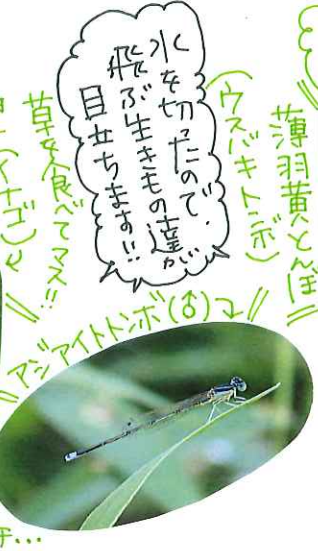 薄羽黄とんぼ
(ウスバキトンボ)
水を切ったので、
飛ぶ生きもの達が
目立ちます!!
草を食べてマス!!
(イナゴ)
アジアイトトンボ(♂)